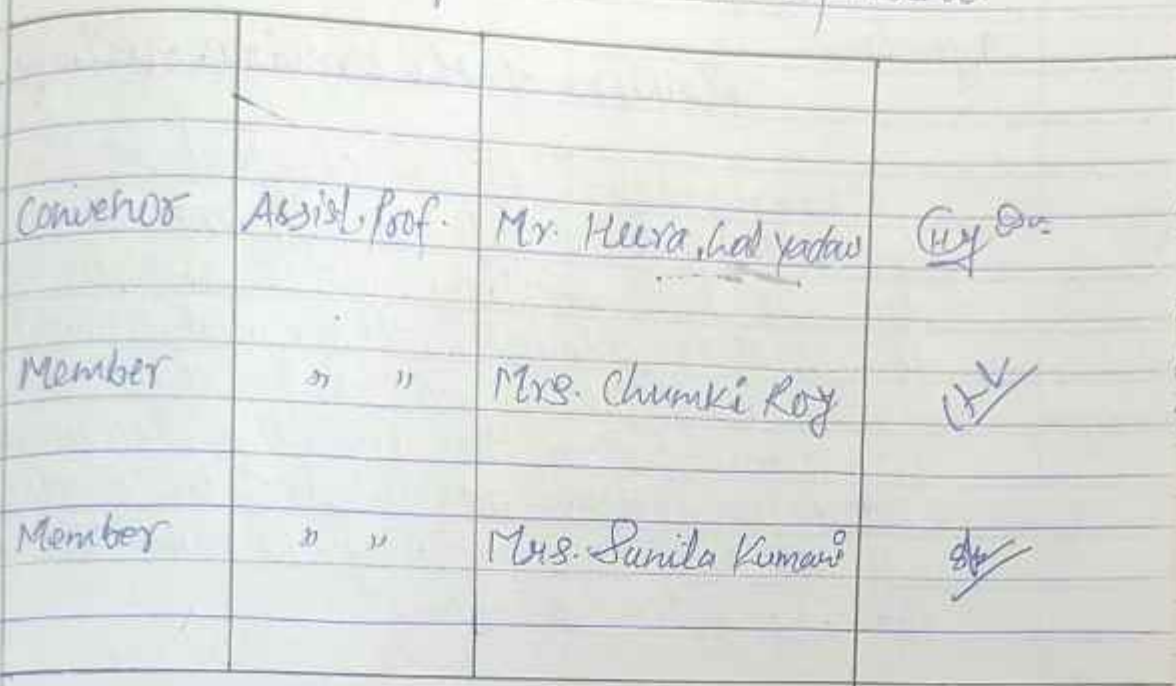 Convenor Assist. Prof. Mr. Heera Lal yadav
Member " " Mrs. Chumki Roy
Member " " Mrs. Sunila Kumari